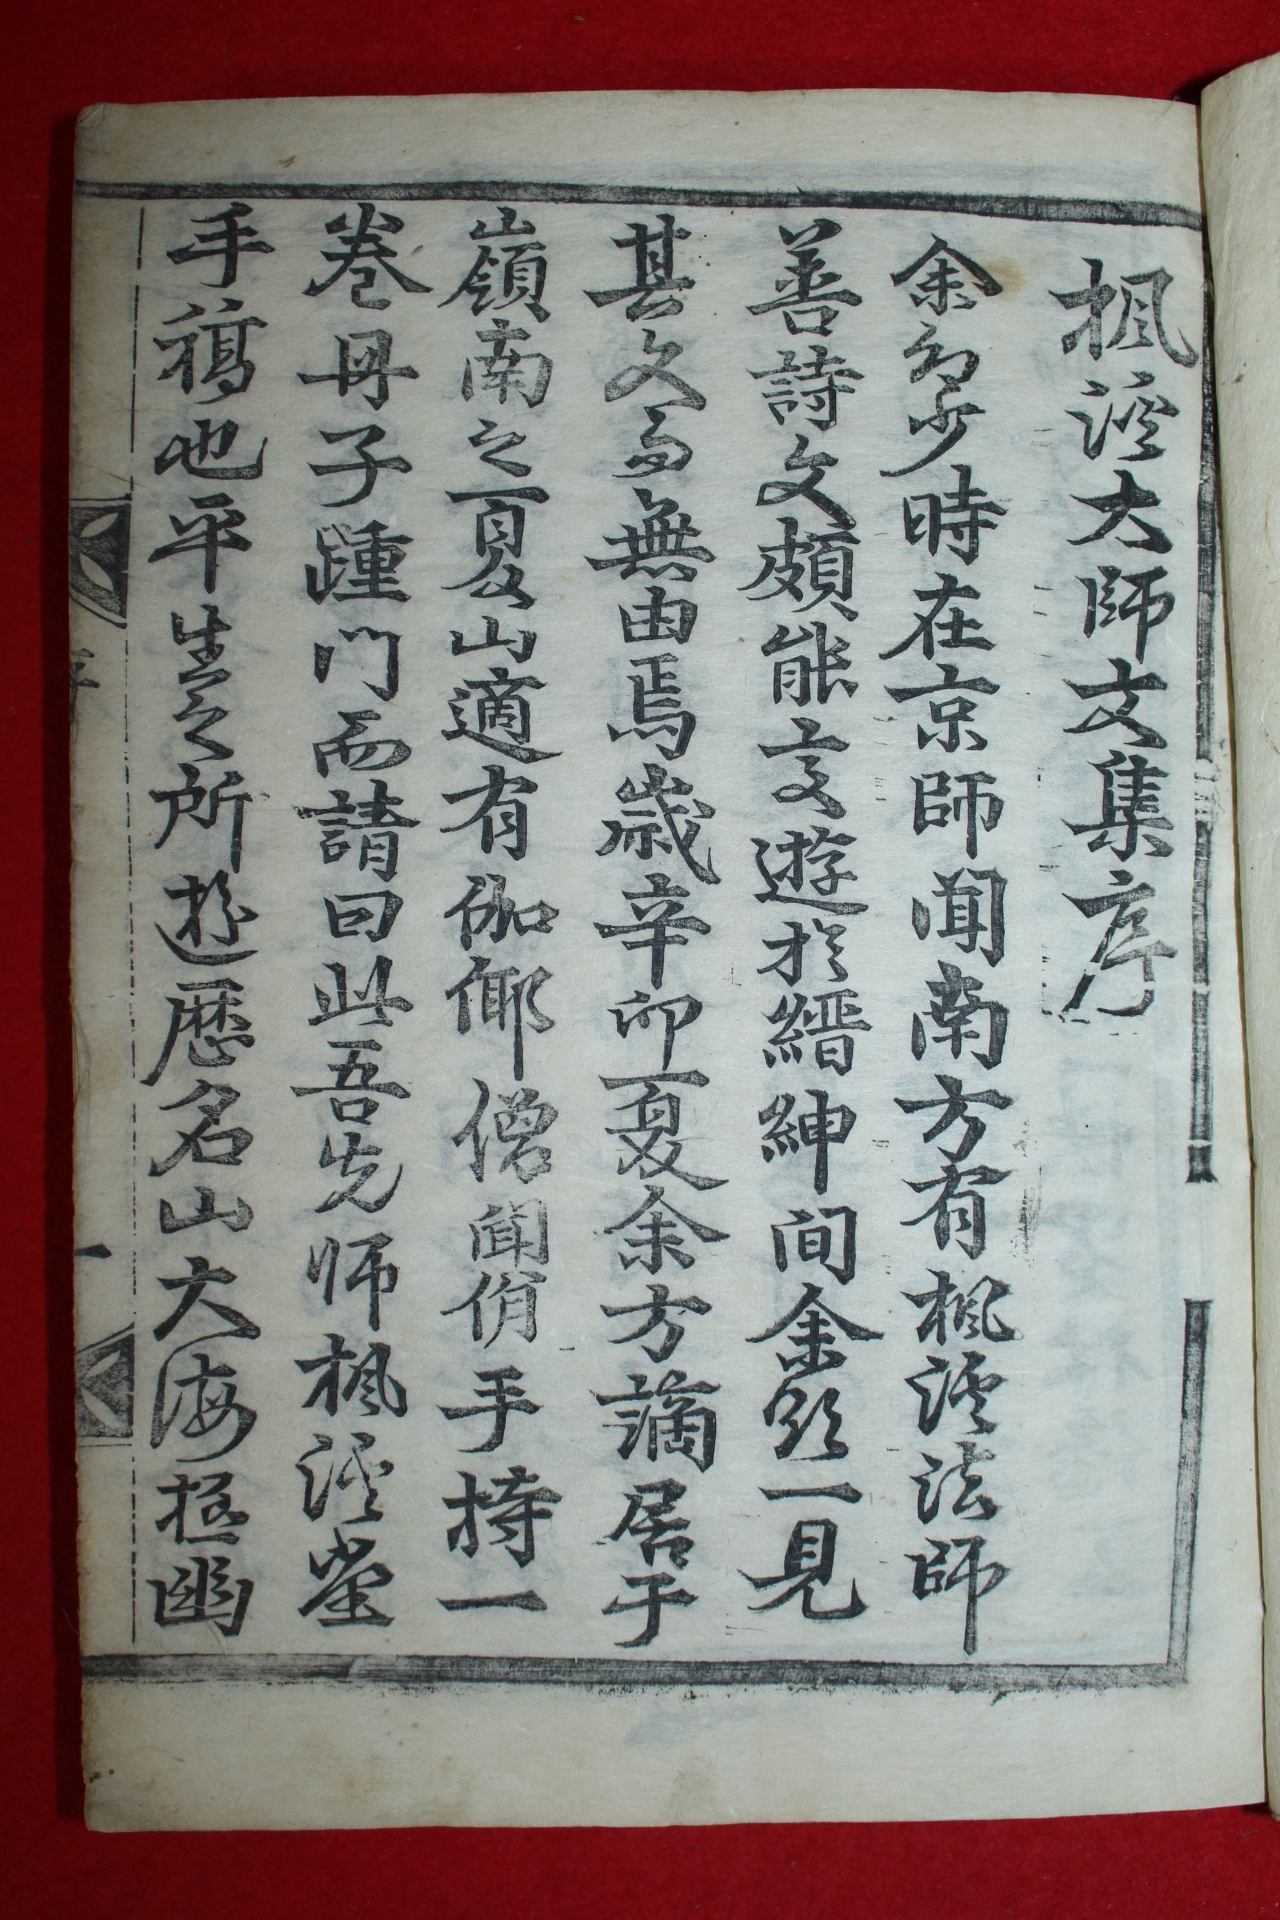 楓溪大師文集序
余幼少時在京師聞南方有楓溪法師
善詩文頗能交遊於縉紳間余欲一見
其文而無由焉歲辛卯夏余方謫居于
嶺南之夏山適有伽倻僧聞俏手持一
卷冊子踵門而請曰此吾先師楓溪堂
手稿也平生之所遊歷名山大海極幽
序
一